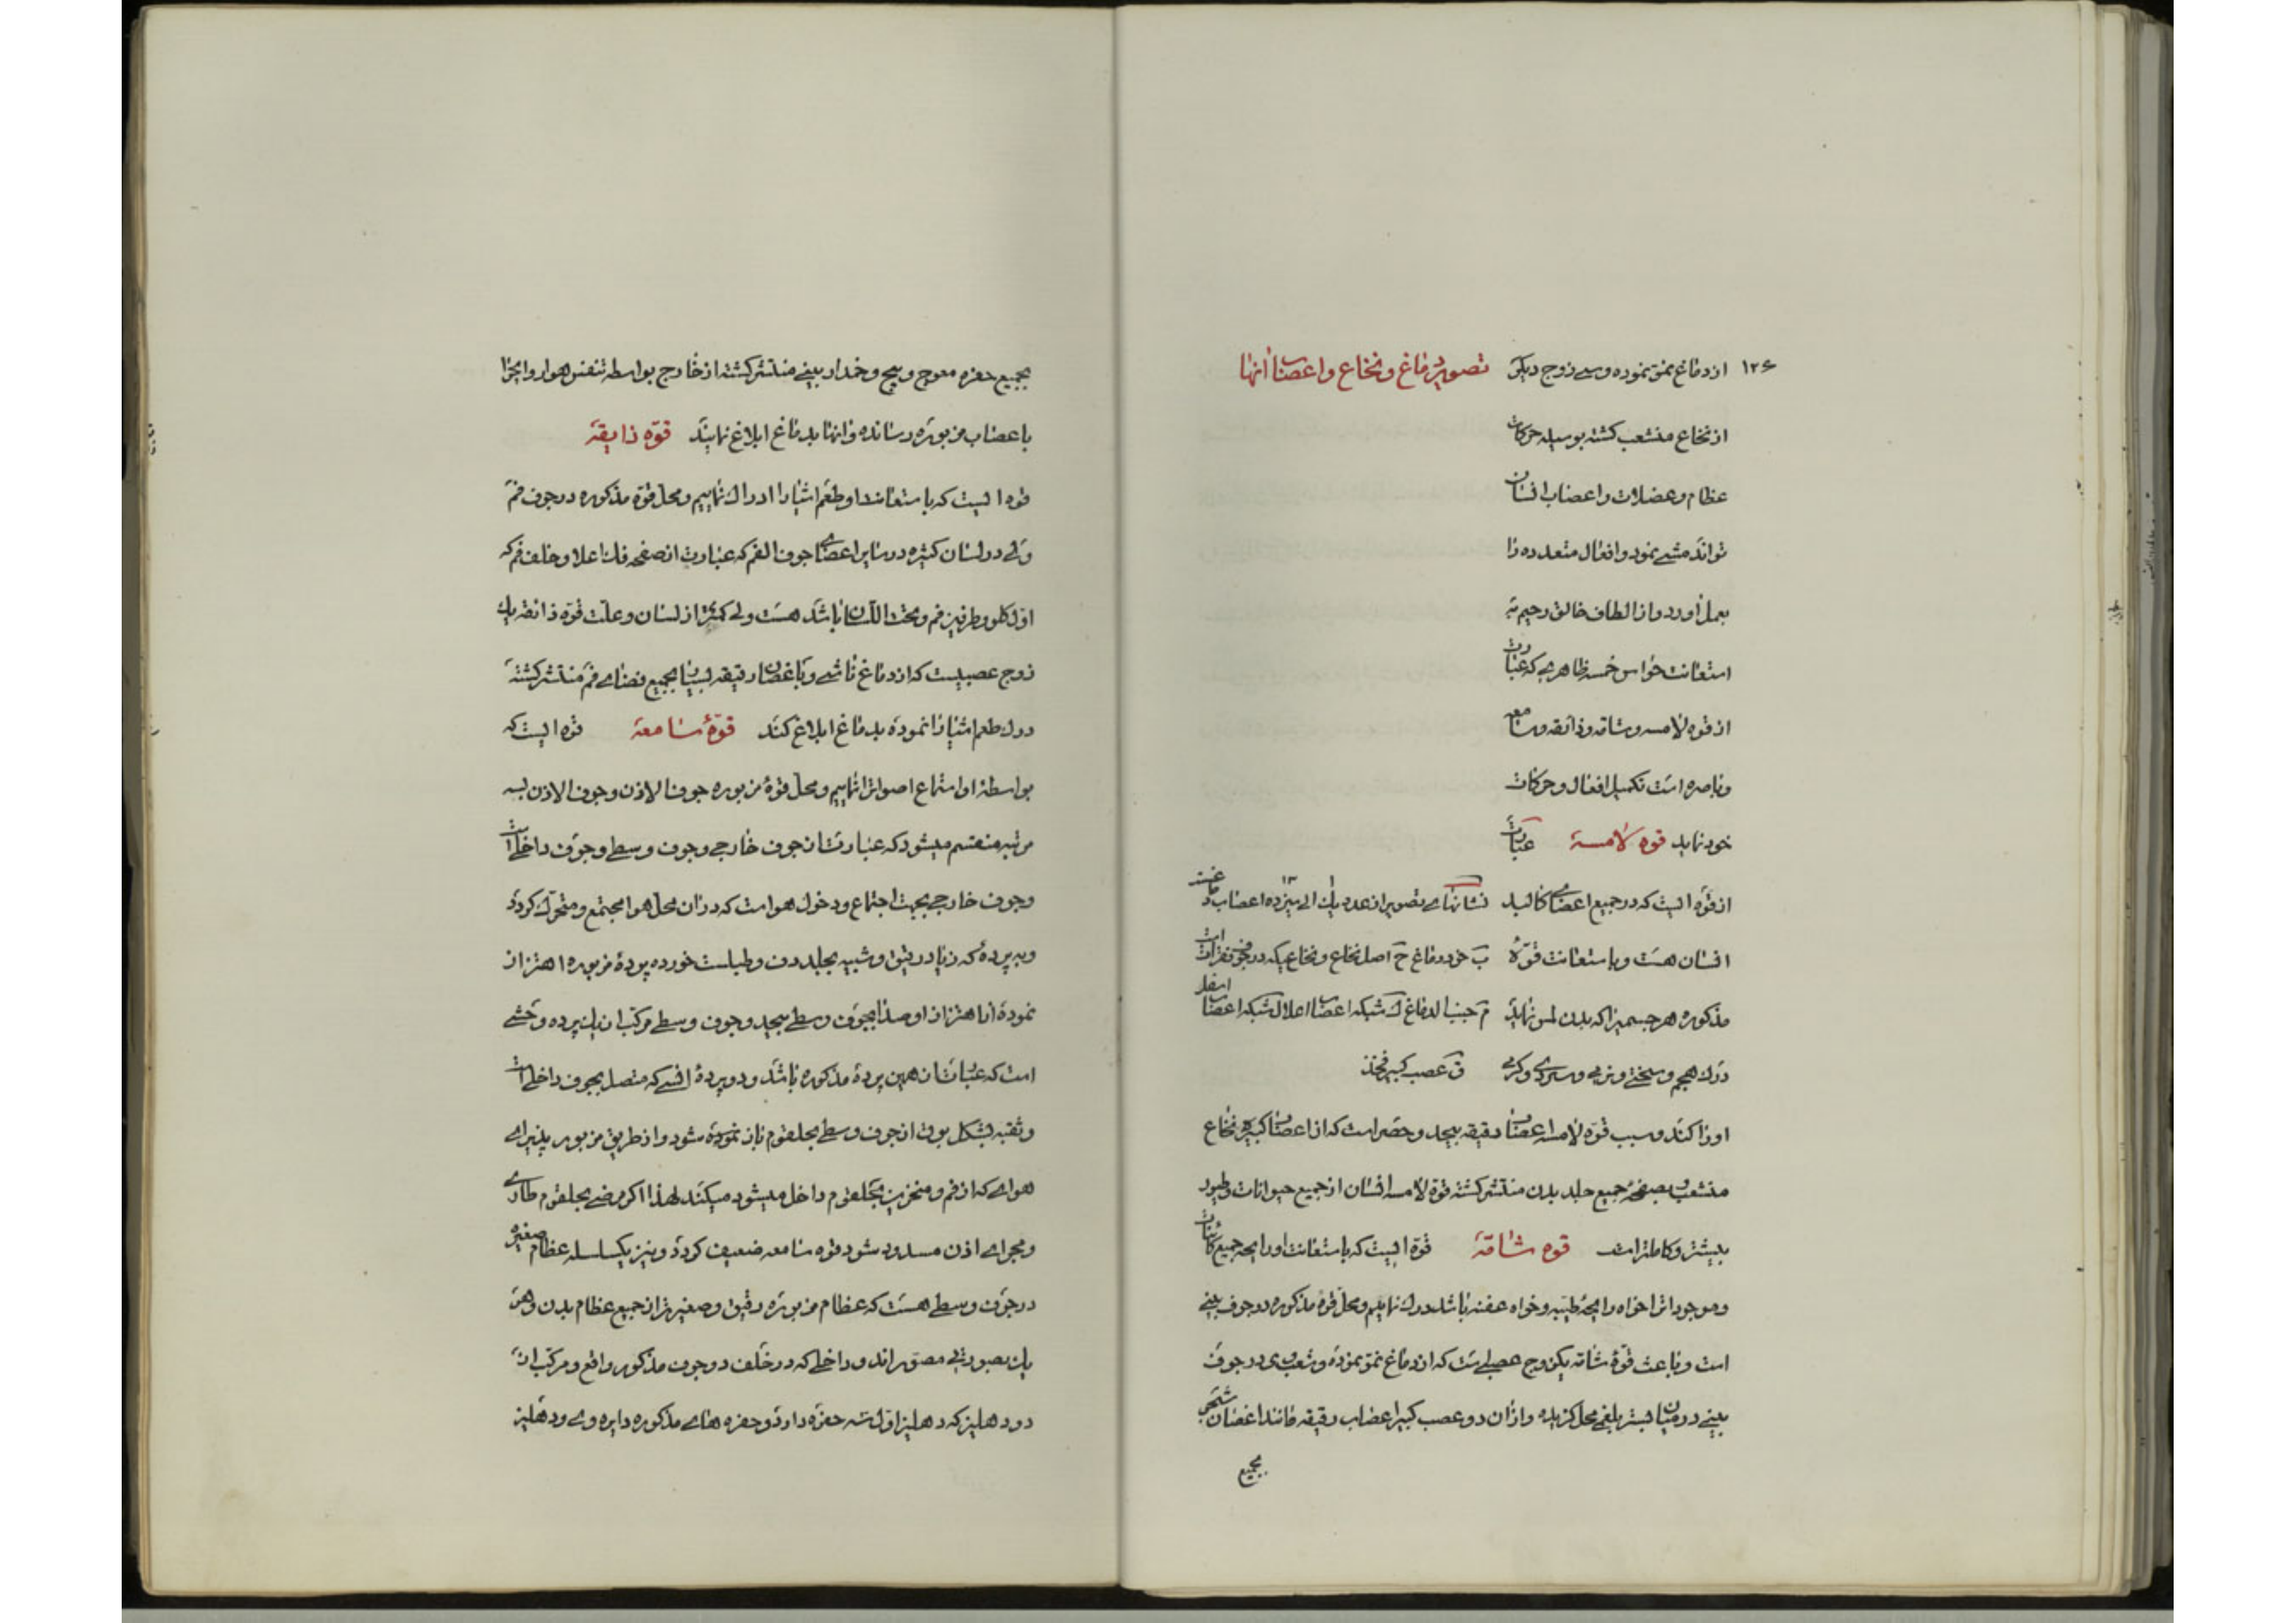 ۱۲۶ از دماغ نموّ نموده و سی زوج دیگر تصویر دماغ و نخاع و اعصاب آنها
از نخاع منشعب کشته بوسیله حرکات
عظام و عضلات و اعصاب انسان
تواند مشی نمود و افعال متعدده را
بعمل آورد و از الطاف خالق رحیم به
استعانت حواس خمسه ظاهری که عبارت
از قوه لامسه و شامه و ذائقه و سامعه
و باصره است تکمیل افعال و حرکات
خود نماید قوه لامسة عبارت
از قوّه ایست که در جمیع اعضای کالبد نشانهای تصویر از عدد یك الی سیزده اعصاب دماغیست
انسان هست و باستعانت قوّۀ ب خود دماغ ح اصل نخاع و نخاعیکه در جوف فقرات است
مذکوره هر جسمیرا که بدن لمس نماید م جنب الدماغ ك شبکه اعصاب اعلا ل شبکه اعصاب اسفل
درك حجم و سختی و نرمی و سردی و کرمی ق عصب کبیر فخذ
او را کند و سبب قوّه لامسه اعصاب دقیقه بیحد و حصر است که از اعصاب کبیره نخاع
منشعب و بصفحۀ جمیع جلد بدن منتشر کشته قوّة لامسه انسان از جمیع حیوانات و طیور
بیشتر و کاملتر است قوه شامّة قوّة ایست که باستعانت او رایحه جمیع کائنات
و موجوداترا خواه رایحۀ طیبه و خواه عفنه باشد درك نمائیم و محلّ قوۀ مذکوره در جوف بینی
است و باعث قوّۀ شامّه یکزوج عصبی است که از دماغ نموّ نموده و شعب وی در جوف
بینی در میان بستر بلغمی محل کزیده و از آن دو عصب کبیر اعصاب دقیقه مانند اغصان شجر
بجمیع
بجمیع حفره معوج و پیچ و خمدار بینی منتشر کشته از خارج بواسطه تنفس هوا روایح را
باعصاب مزبوره رسانده و آنها بدماغ ابلاغ نمایند قوّه ذایقة
قوه ایست که باستعانت او طعم اشیا را ادراك نمائیم و محل قوّه مذکوره در جوف فم
ولی در لسان کثیره در سایر اعضای جوف الفم که عبارت از صفحه فك اعلا و خلف فم که
اوّل کلو و طرفین فم و تحت اللسان باشد هست ولی کمتر از لسان و علّت قوّه ذائقه یك
زوج عصبیست که از دماغ ناشی و باغصان دقیقه بسیار بجمیع فضای فم منتشر کشته
درك طعم اشیا را نموده بدماغ ابلاغ کند قوّۀ سامعة قوه ایست که
بواسطۀ او استماع اصواترا نمائیم و محل قوۀ مزبوره جوف الاذن و جوف الاذن بسه
مرتبه منقسم میشود که عبارت از جوف خارجی و جوف وسطی و جوف داخلی است
وجوف خارجی بجهت اجتماع و دخول هوا است که در آن محل هوا مجتمع و متحرك کردد
و به پردۀ که زیاد رقیق و شبیه بجلد دف و طبلست خورده پردۀ مزبوره اهتزاز
نموده از اهتزاز او صدا بجوف وسطی پیچد و جوف وسطی مرکب از یك پرده وحشی
است که عبارت از همین پردۀ مذکوره باشد و دو پردۀ انسی که متصل بجوف داخلی است
و ثقبه بشکل بوق از جوف وسطی بحلقوم باز نموده میشود و از طریق مزبور پذیرای
هوای که از فم و منخرین بحلقوم داخل میشود میکند لهذا اکر مرضی بحلقوم طاری
و مجرای اذن مسدود شود قوه سامعه ضعیف کردد و نیز یکسلسله عظام صغیره
در جوف وسطی هست که عظام مزبوره دقیق و صغیرتر از جمیع عظام بدن و هر
یك بصورتی مصوّراند و داخلی که در خلف دو جوف مذکور واقع و مرکب از
دو دهلیز که دهلیز اوّل سه حفره دارد و حفره های مذکوره دایره وی و دهلیز